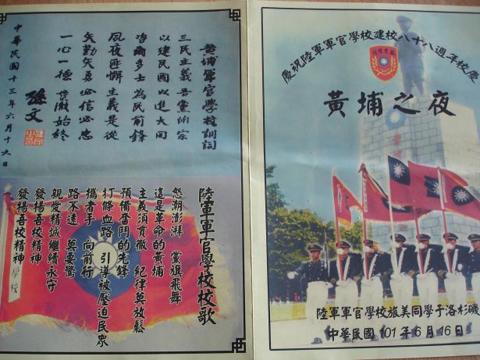 慶祝陸軍軍官學校建校八十八週年校慶
黃埔之夜
陸軍軍官學校旅美同學于洛杉磯
中華民國101年6月16日
黃埔軍官學校訓詞
三民主義吾黨所宗
以建民國以進大同
咨爾多士為民前鋒
夙夜匪懈主義是從
矢勤矢勇必信必忠
一心一德貫徹始終
孫文
中華民國十三年六月十六日
陸軍軍官學校校歌
怒潮澎湃 黨旗飛舞
這是革命的黃埔
主義須貫徹 紀律莫放鬆
預備奮鬥的先鋒
打條血路 引導被壓迫民眾
攜著手 向前行
路不遠 莫要驚
親愛精誠繼續永守
發揚吾校精神
發揚吾校精神